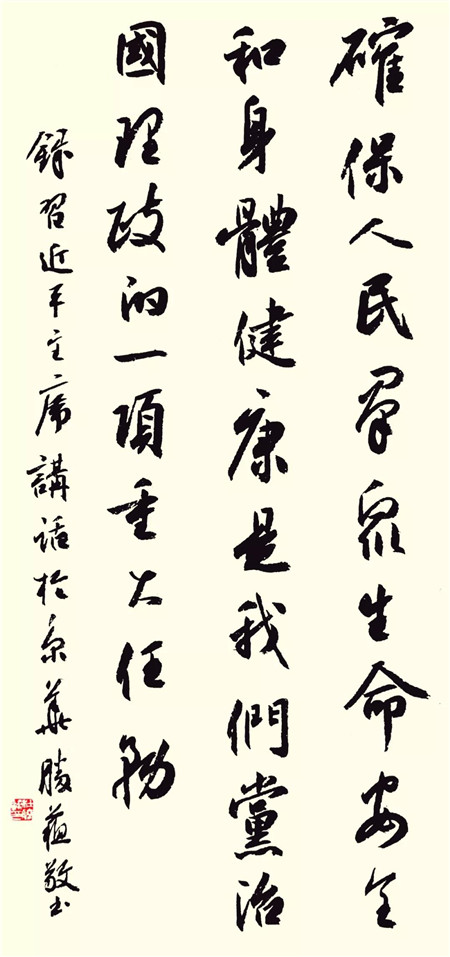 確保人民羣眾生命安全
和身體健康是我們黨治
國理政的一項重大任務
錄習近平主席講話於京華勝蘊敬書